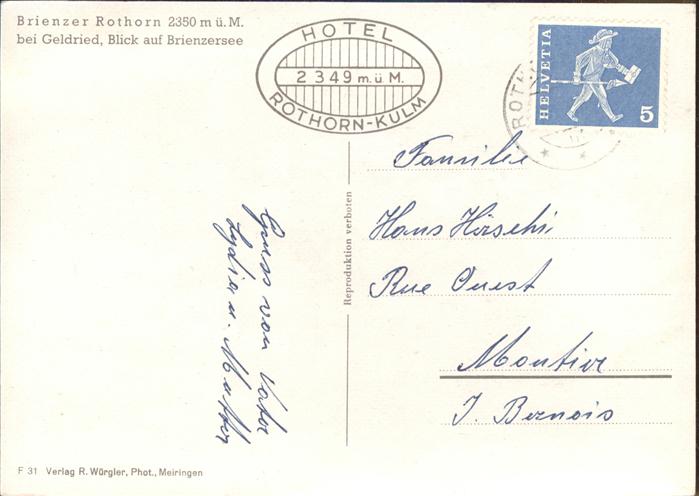 Brienzer Rothorn 2350 m ü. M.
bei Geldried, Blick auf Brienzersee
HOTEL
2349 m. ü M.
ROTHORN-KULM
ROTH
HELVETIA
5
Familie
Hans Hirschi
Rue Ouest
Moutier
J. Bernois
Gruss von Vater
Lydia u. Mutter
Reproduktion verboten
F 31 Verlag R. Würgler, Phot., Meiringen